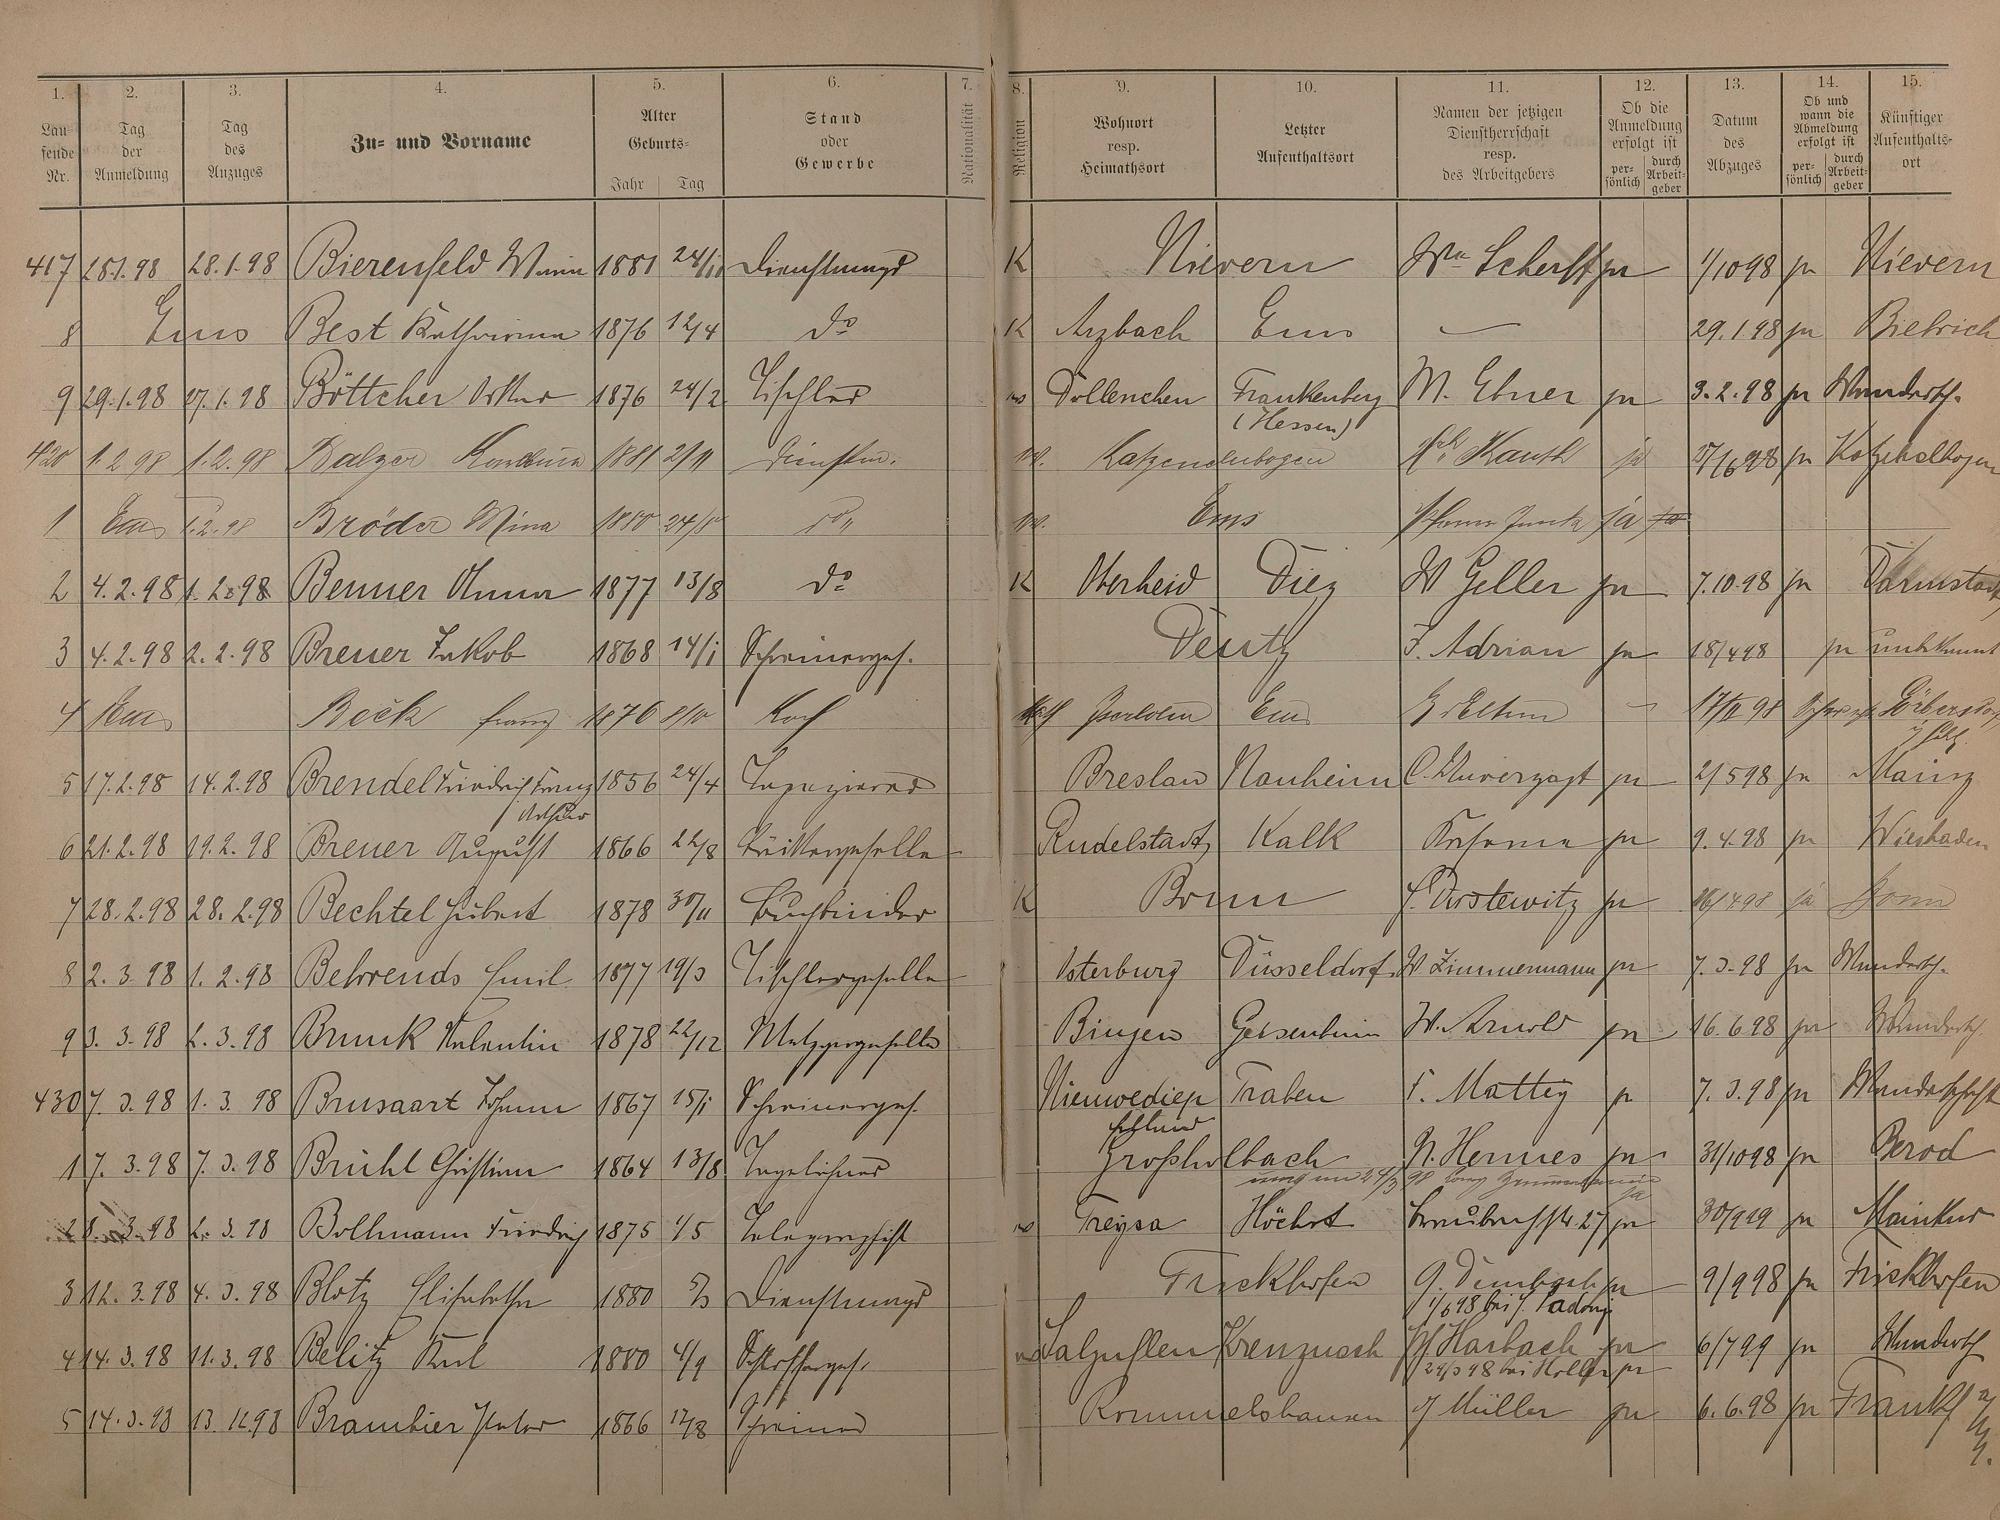 1. 2. 3. 4. 5. 6. 7. 8. 9. 10. 11. 12. 13. 14. 15.
Laufende Nr. Tag der Anmeldung Tag des Anzuges Zu- und Vorname Alter Geburts- Jahr Tag Stand oder Gewerbe Nationalität Religion Wohnort resp. Heimathsort Letzter Aufenthaltsort Namen der jetzigen Dienstherrschaft resp. des Arbeitgebers Ob die Anmeldung erfolgt ist persönlich durch Arbeitgeber Datum des Abzuges Ob und wann die Abmeldung erfolgt ist persönlich durch Arbeitgeber Künftiger Aufenthaltsort
417 28.1.98 28.1.98 Bierenfeld 1881 Dienstmagd K Nievern Scherff ja 1/10 98 ja Nievern
8 Ems Best Katharina 1876 12/4 do K Arzbach Ems — 29.1.98 ja Biebrich
9 29.1.98 27.1.98 Böttcher Arthur 1876 24/2 Tischler Dollenchen Frankenberg M. Ebner ja 3.2.98 ja Wandersch.
(Hessen)
420 1.2.98 1.2.98 Balzer 1881 2/11 Dienstm. Katzenelnbogen Kauth ja 27/6 98 ja
1 Ems 1.2.98 Bröder Mina 1880 do Ems ja
2 4.2.98 1.2.98 Benner Anna 1877 13/8 do K Oberheid Diez W Geller ja 7.10.98 ja Darmstadt
3 4.2.98 2.2.98 Breuer Jakob 1868 14/1 Schreinerges. Deutz F. Adrian ja 18/4 98 ja unbekannt
4 Ems Beck Franz 1876 8/10 Koch Iserlohn Ems 98
5 17.2.98 14.2.98 Brendel Friedrich Franz 1856 24/4 Tapezierer Breslau Nauheim C. Unverzagt ja 2/5 98 ja Mainz
Arthur
6 21.2.98 19.2.98 Breuer August 1866 22/8 Rudelstadt Kalk ja 9.4.98 ja Wiesbaden
7 28.2.98 28.2.98 Bechtel Hubert 1878 30/11 Buchbinder K Bonn ja 16/4 98 ja Bonn
8 2.3.98 1.2.98 Behrends Emil 1877 19/3 Tischlergeselle Osterburg Düsseldorf W Zimmermann ja 7.3.98 ja Wandersch.
9 3.3.98 2.3.98 Brunk Valentin 1878 22/12 Metzgergeselle Bingen Geisenheim W. Arnold ja 16.6.98 ja Wandersch.
430 7.3.98 1.3.98 Brusaart Johann 1867 15/1 Schreinerges. Nieuwediep Traben F. Mattig ja 7.3.98 ja Wanderschaft
Holland
1 7.3.98 7.3.98 Brühl Christian 1864 13/8 Tagelöhner Großholbach N. Hermes ja 31/10 98 ja Berod
ja
2 8.3.98 2.3.98 Bollmann Friedrich 1875 1/5 Telegraphist Treysa Höchst 27 ja ja Mainkur
3 12.3.98 4.3.98 Blotz Elisabetha 1880 5/3 Dienstmagd Frickhofen G. Dembach ja 9/9 98 ja Frickhofen
1/6 98 bei J. Padony
4 14.3.98 11.3.98 Belitz Karl 1880 4/9 Schlosserges. Salzuflen Kreuznach Harbach ja 6/7 99 ja Wandersch
24/3 98 bei Holler ja
5 14.3.98 Brambier Peter 1866 12/8 Schreiner Rommelshausen J Müller ja 6.6.98 ja Frankf a/M.